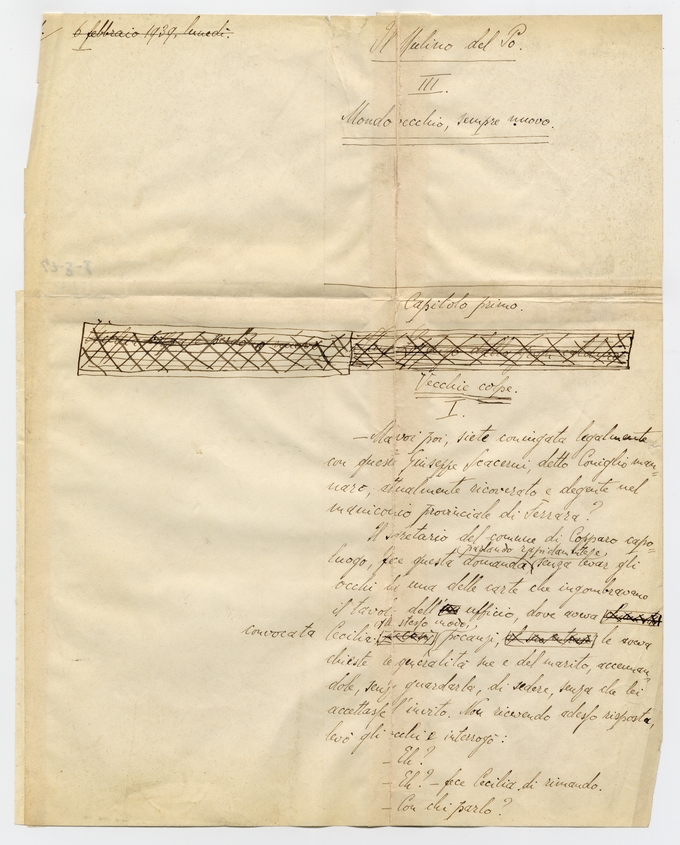 6 febbraio 1939, lunedì.
Il Mulino del Po.
III.
Mondo vecchio, sempre nuovo.
Capitolo primo.
Vecchie colpe.
I.
— Ma voi poi, siete coniugata legalmente
con questo Giuseppe Scacerni, detto Coniglio man-
naro, attualmente ricoverato e degente nel
manicomio provinciale di Ferrara?
Il segretario del comune di Copparo capo-
luogo, fece questa domanda, senza levar gli
parlando rapidamente,
occhi da una delle carte che ingombravano
il tavolo dell' ufficio, dove aveva
convocata Cecilia pocanzi, le aveva
allo stesso modo,
chieste le generalità sue e del marito, accennan-
dole, senza guardarla, di sedere, senza che lei
accettasse l'invito. Non ricevendo adesso risposta,
levò gli occhi e interrogò:
— Eh?
— Eh? — fece Cecilia di rimando.
— Con chi parlo?